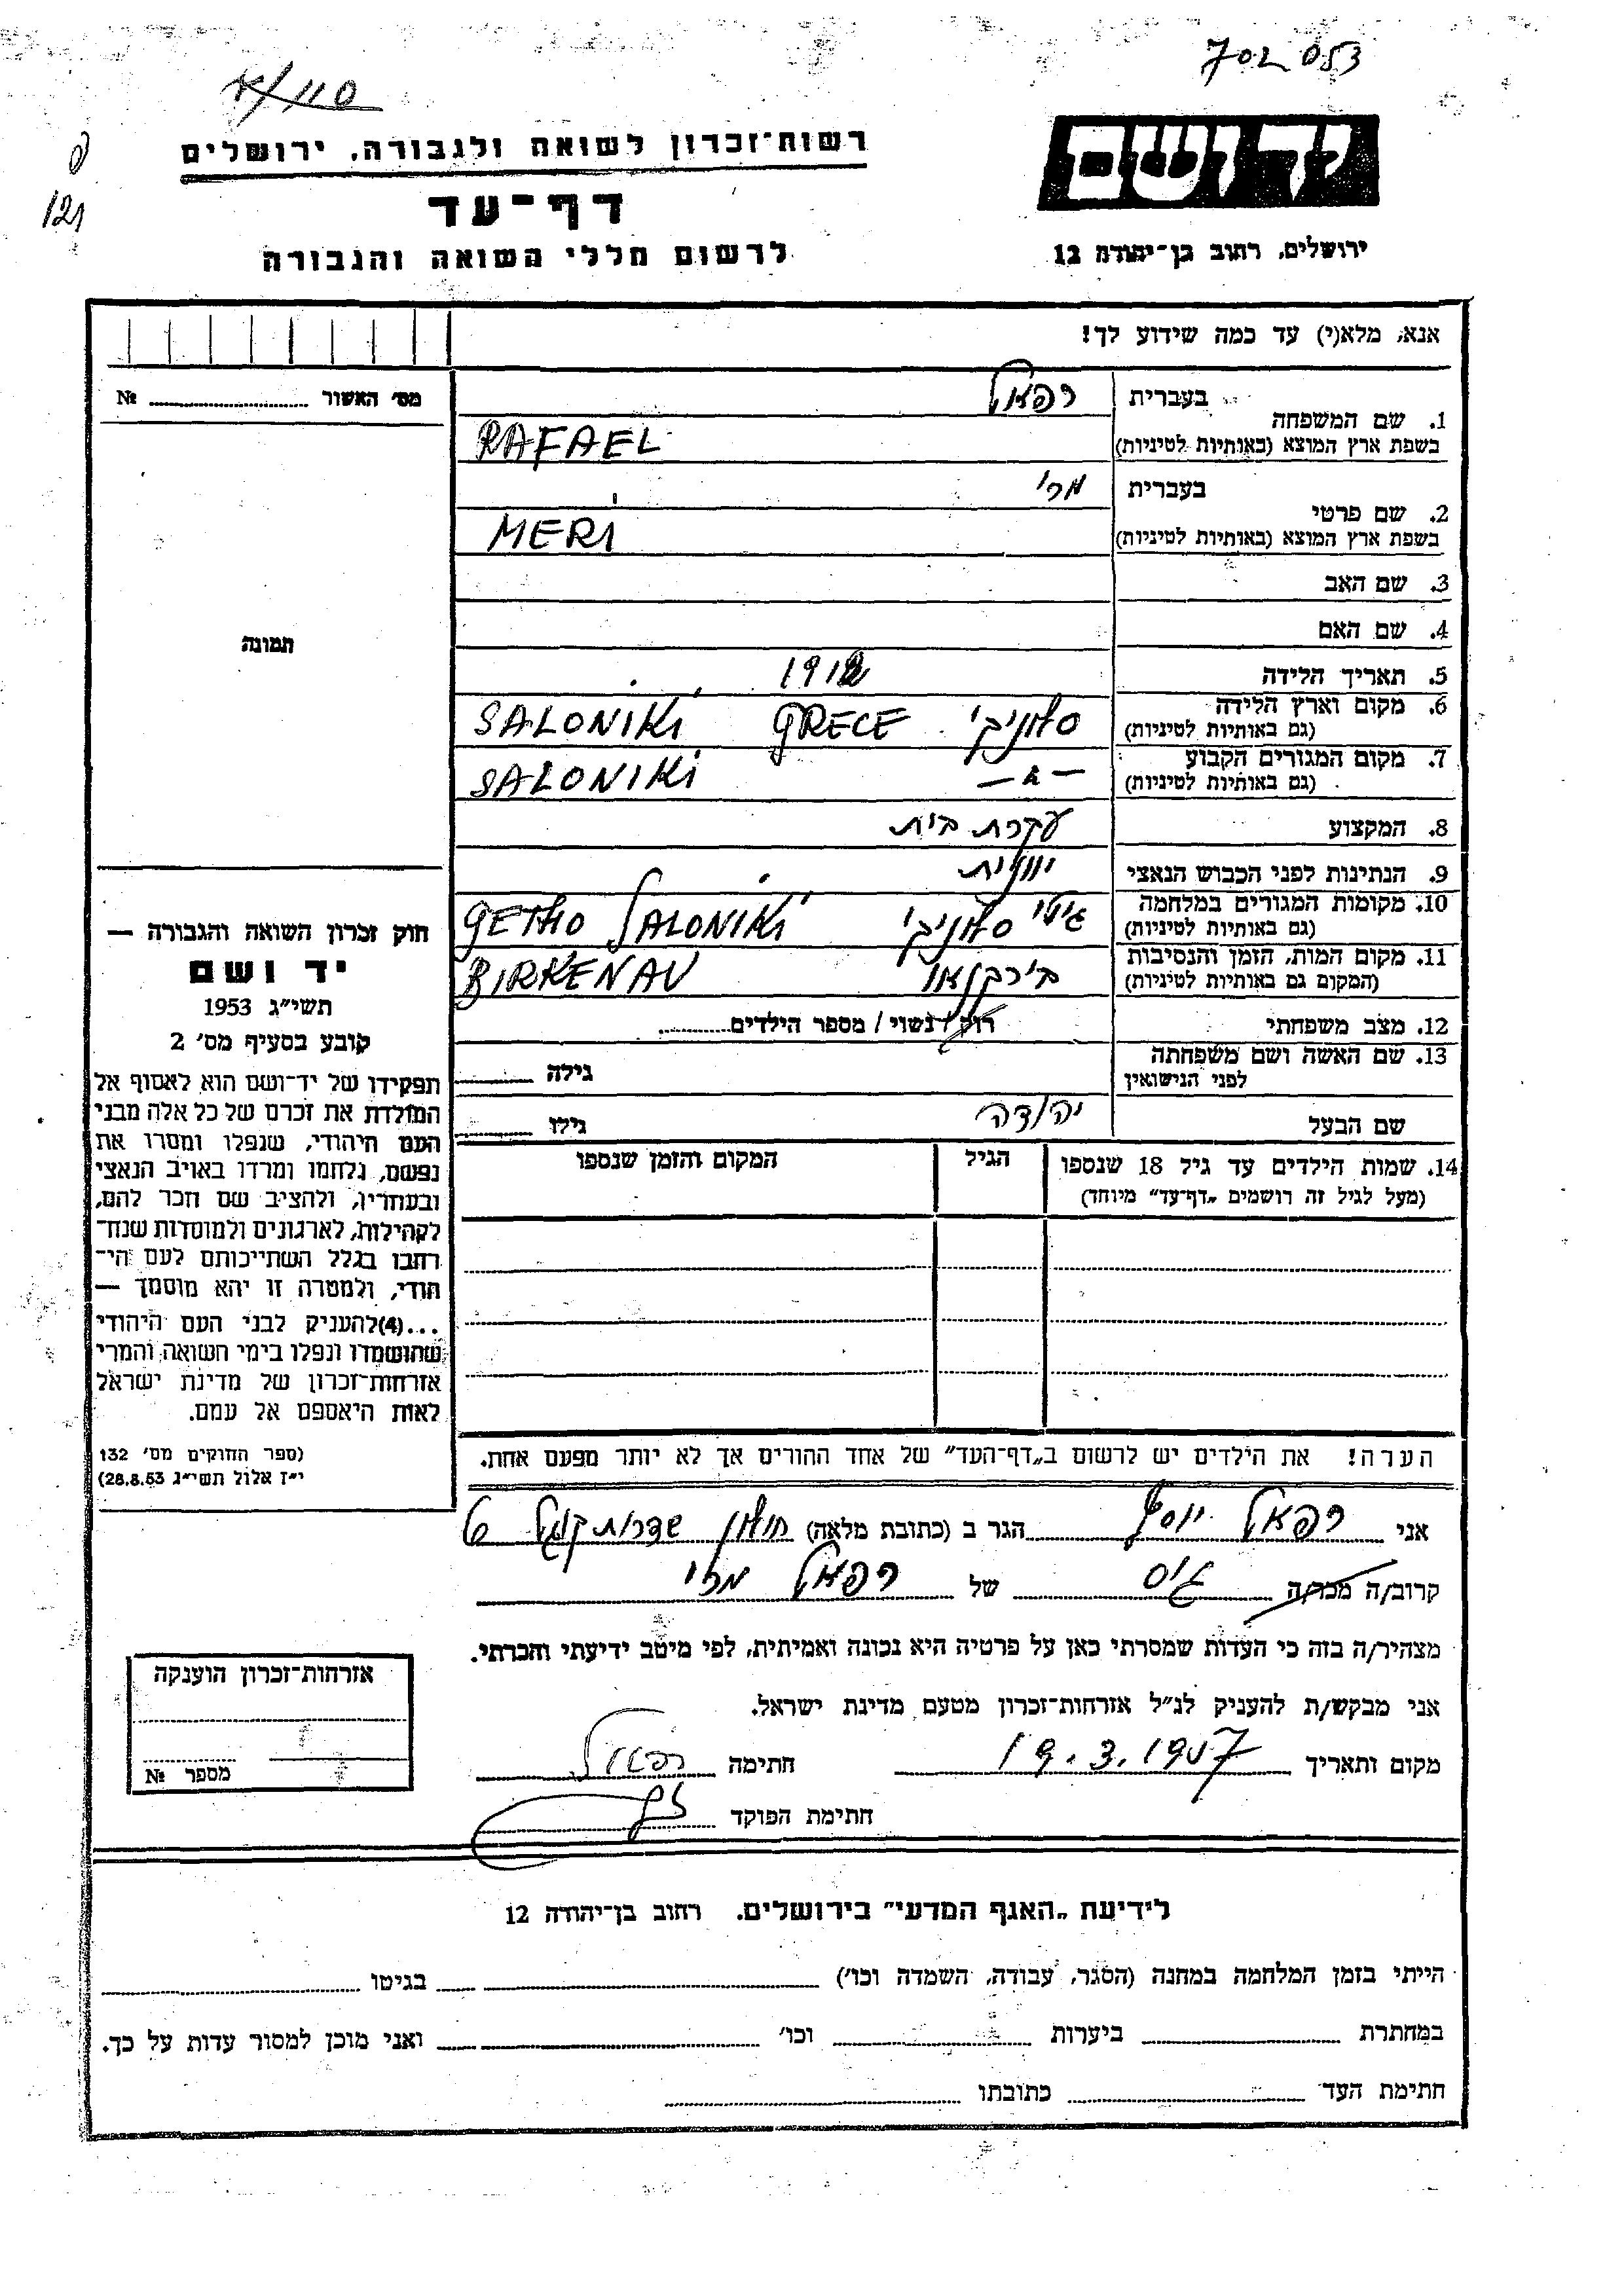 702053
א/110
121
יד ושם
רשות־זכרון לשואה ולגבורה, ירושלים
דף־עד
לרשום חללי השואה והגבורה
ירושלים, רחוב בן־יהודה 12
אנא, מלא(י) עד כמה שידוע לך!
מס' האשור № 
1. שם המשפחה
בעברית רפאל
בשפת ארץ המוצא (באותיות לטיניות) RAFAEL
2. שם פרטי
בעברית מרי
בשפת ארץ המוצא (באותיות לטיניות) MERI
3. שם האב
4. שם האם
5. תאריך הלידה 1912
6. מקום וארץ הלידה
(גם באותיות לטיניות) סלוניקי GRECE SALONIKI
7. מקום המגורים הקבוע
(גם באותיות לטיניות) — " — SALONIKI
8. המקצוע עקרת בית
9. הנתינות לפני הכבוש הנאצי יוונית
10. מקומות המגורים במלחמה
(גם באותיות לטיניות) גיטו סלוניקי GETHO SALONIKI
11. מקום המות, הזמן והנסיבות
(המקום גם באותיות לטיניות) בירקנאו BIRKENAU
12. מצב משפחתי רווק / נשוי / מספר הילדים
13. שם האשה ושם משפחתה
לפני הנישואין גילה
שם הבעל יהודה גילו
14. שמות הילדים עד גיל 18 שנספו
(מעל לגיל זה רושמים „דף־עד" מיוחד)
הגיל
המקום והזמן שנספו
תמונה
חוק זכרון השואה והגבורה —
יד ושם
תשי"ג 1953
קובע בסעיף מס' 2
תפקידו של יד־ושם הוא לאסוף אל
המולדת את זכרם של כל אלה מבני
העם היהודי, שנפלו ומסרו את
נפשם, נלחמו ומרדו באויב הנאצי
ובעוזריו, ולהציב שם וזכר להם,
לקהילות, לארגונים ולמוסדות שנח־
רבו בגלל השתייכותם לעם הי־
הודי, ולמטרה זו יהא מוסמך —
...(4) להעניק לבני העם היהודי
שהושמדו ונפלו בימי השואה והמרי
אזרחות־זכרון של מדינת ישראל
לאות היאספם אל עמם.
(ספר החוקים מס' 132
י"ז אלול תשי"ג 28.8.53)
הערה! את הילדים יש לרשום ב„דף־העד" של אחד ההורים אך לא יותר מפעם אחת.
אני רפאל יוסף הגר ב (כתובת מלאה) חולון שדרות קוגל 6
קרוב/ה מכר/ה גיס של רפאל מרי
מצהיר/ה בזה כי העדות שמסרתי כאן על פרטיה היא נכונה ואמיתית, לפי מיטב ידיעתי והכרתי.
אני מבקש/ת להעניק לנ"ל אזרחות־זכרון מטעם מדינת ישראל.
מקום ותאריך 19.3.1957 חתימה רפאל
חתימת הפוקד
אזרחות־זכרון הוענקה
מספר №
לידיעת „האגף המדעי" בירושלים. רחוב בן־יהודה 12
הייתי בזמן המלחמה במחנה (הסגר, עבודה, השמדה וכו') בגיטו
במחתרת ביערות וכו' ואני מוכן למסור עדות על כך.
חתימת העד כתובתו